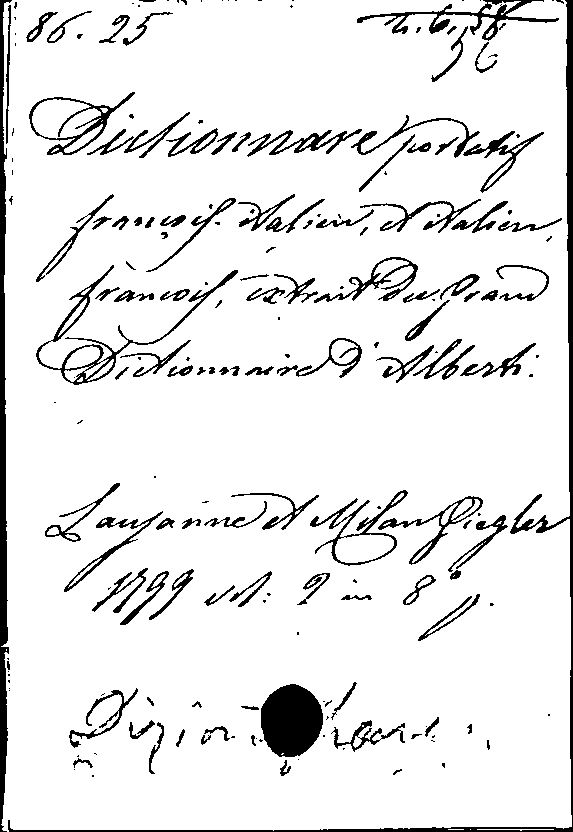 86. 25
56
Dictionnare portatif
françois-italien, et italien,
françois, extrait du grand
Dictionnaire d'Alberti.
Lausanne et Milan Giegler
1799 vol: 2 in 8° p.